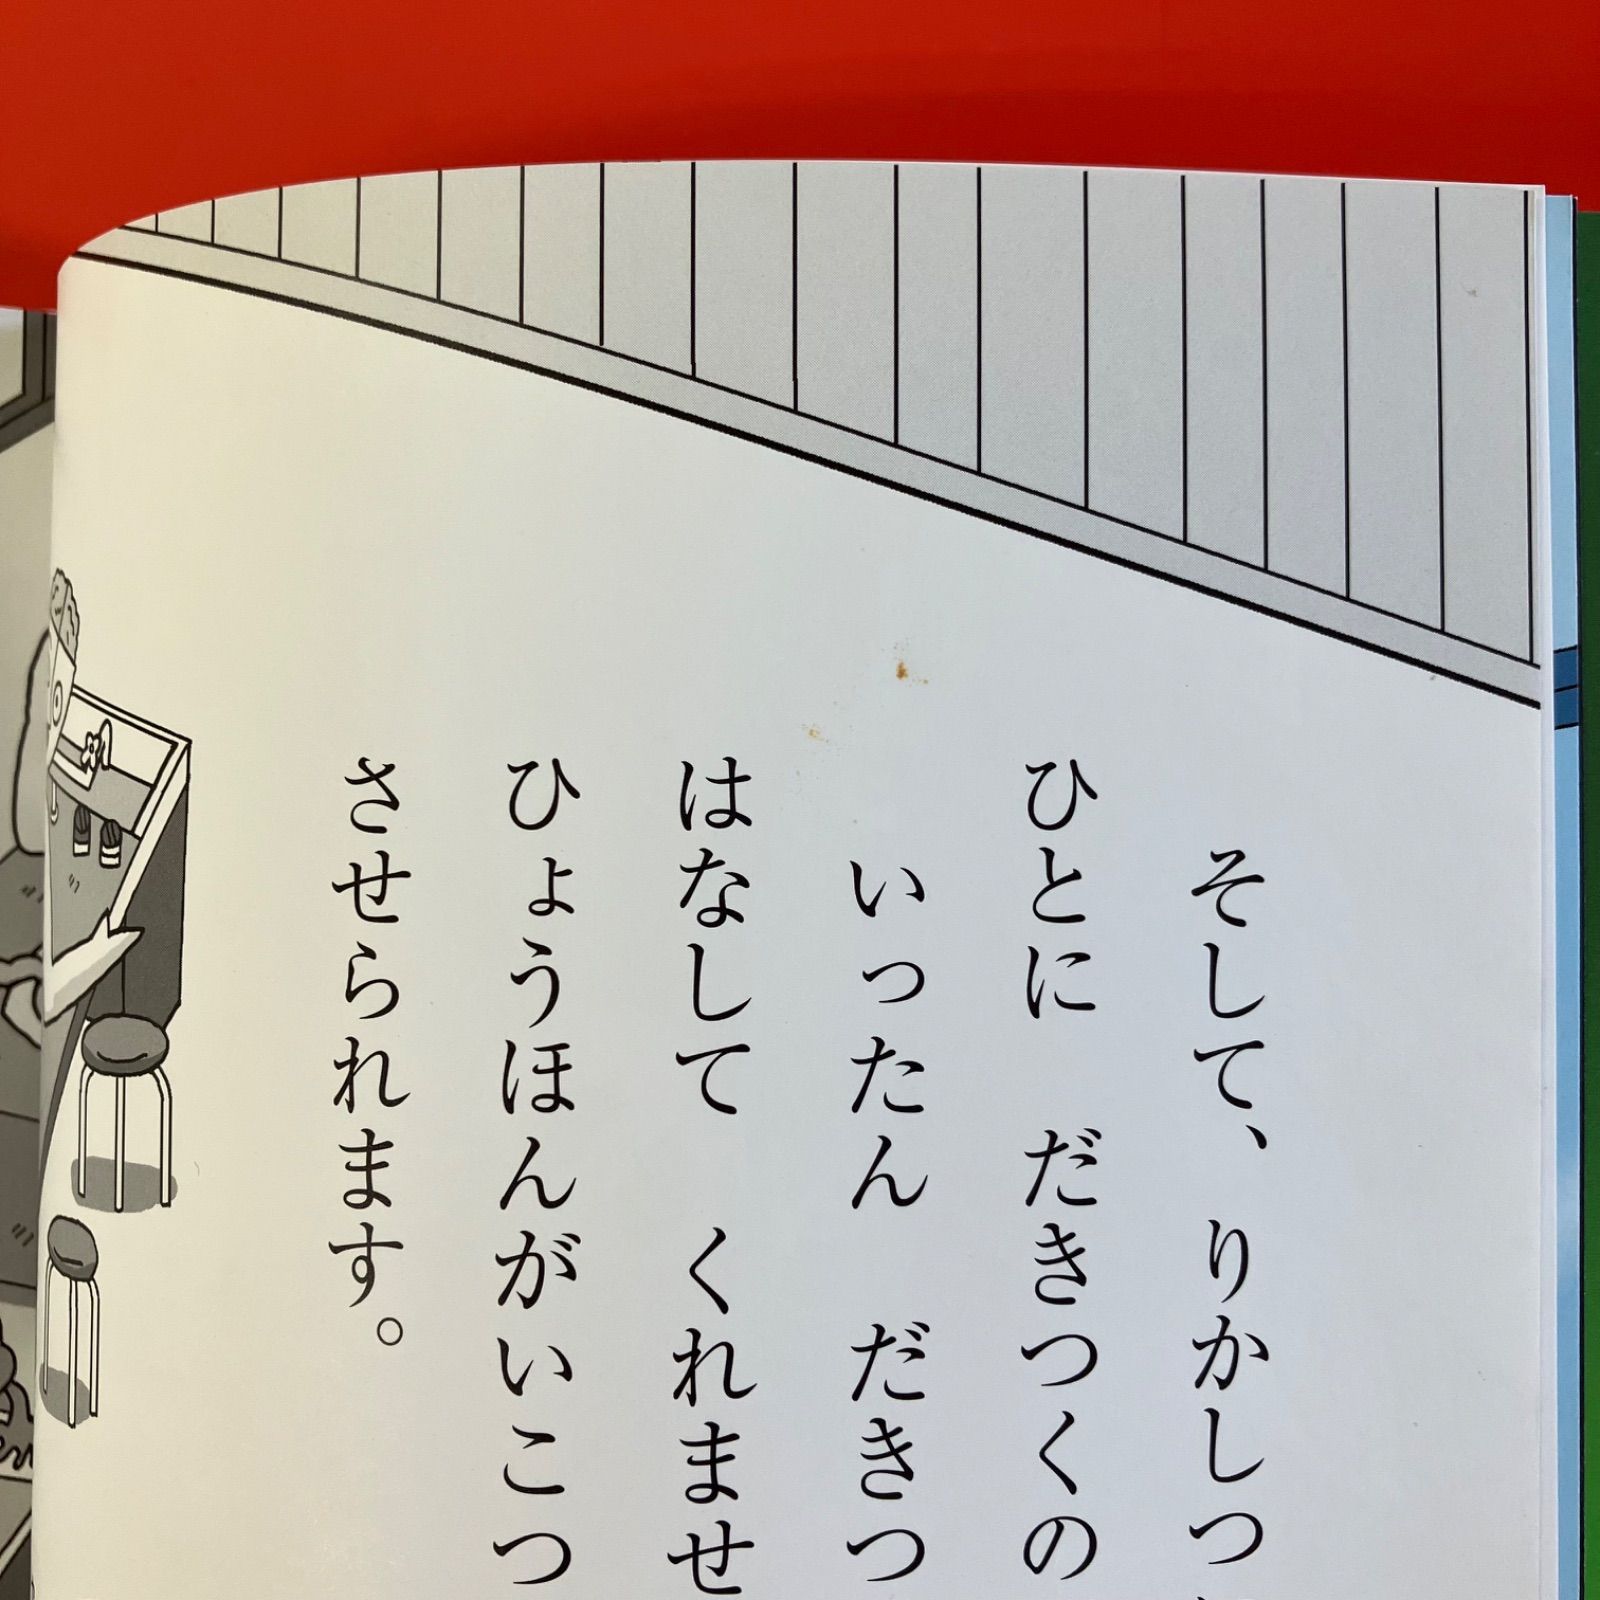 そして、りかしつ
ひとに　だきつくの
いったん　だきつ
はなして　くれませ
ひょうほんがいこつ
させられます。